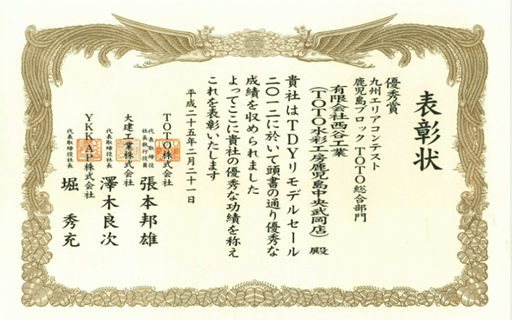 表彰状
優秀賞
九州エリアコンテスト
鹿児島ブロック TOTO総合部門
有限会社西谷工業
(TOTO水彩工房鹿児島中央武岡店) 殿
貴社はTDYリモデルセール
二〇一二に於いて頭書の通り優秀な
成績を収められました
よってここに貴社の優秀な功績を称え
これを表彰いたします
平成二十五年二月二十一日
TOTO株式会社
代表取締役
社長執行役員
張本邦雄
大建工業株式会社
代表取締役社長
澤木良次
YKK AP株式会社
代表取締役社長
堀 秀充